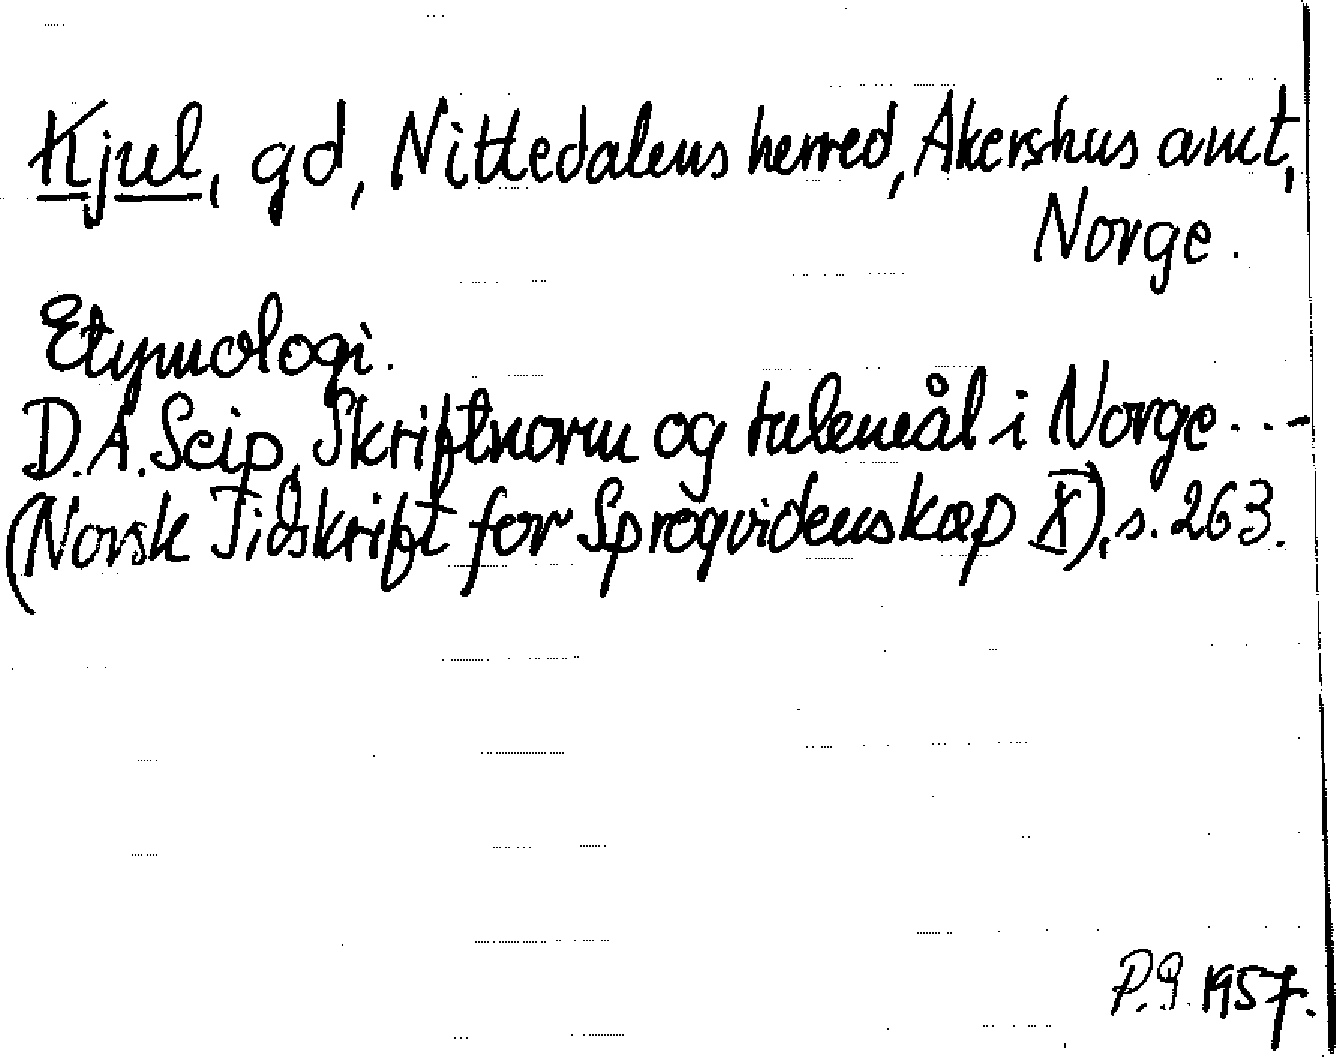 Kjul, gd, Nittedalens herred, Akershus amt,
Norge.
Etymologi.
D.A. Seip, Skriftnorm og talemål i Norge...-
(Norsk Tidskrift for Sprogvidenskap X), s. 263.
P.G. 1957.